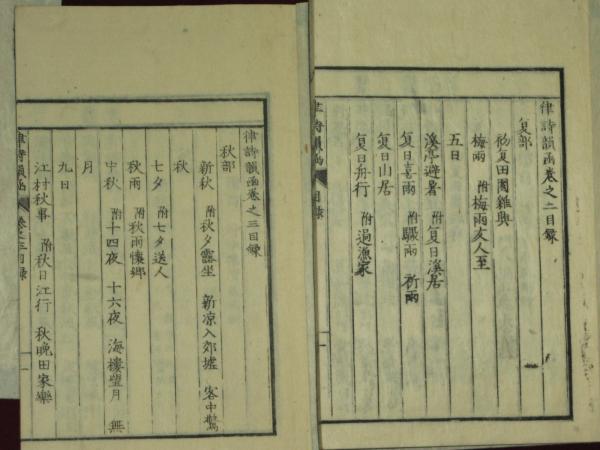 律詩韻函巻之二目録
夏部
初夏田園雜興
梅雨 附梅雨友人至
五日
溪亭避暑 附夏日溪居
夏日喜雨 附驟雨 祈雨
夏日山居
夏日舟行 附過漁家
律詩韻函 目録
一
律詩韻函巻之三目録
秋部
新秋 附秋夕露坐 新凉入郊墟 客中驚
秋
七夕 附七夕送人
秋雨 附秋雨懷鄉
中秋 附十四夜 十六夜 海樓望月 無
月
九日
江村秋事 附秋日江行 秋晚田家樂
律詩韻函 巻之三目録
一